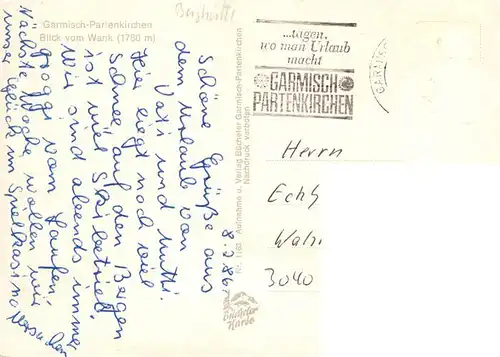 Garmisch-Partenkirchen
Blick vom Wank (1780 m)
...tagen,
wo man Urlaub
macht
GARMISCH
PARTENKIRCHEN
8.3.86
Schöne Grüße aus
dem Urlaub von
Vati und Mutti.
Hier liegt noch viel
Schnee, auf den Bergen
ist viel Skibetrieb.
Wir sind abends immer
groggi vom Laufen.
Nächste Woche wollen wir
unser Glück im Spielkasino versuchen
Nr. 1163 Aufnahme u. Verlag Bücheler Garmisch-Partenkirchen
Nachdruck verboten
Bücheler
Karte
Herrn
3040